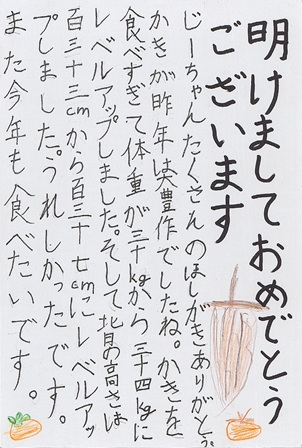 明けましておめでとう
ございます
じーちゃんたくさんのほしがきありがとう。
かきが昨年は豊作でしたね。かきを
食べすぎて体重が三十kgから三十四kgに
レベルアップしました。そして背の高さは
百三十三cmから百三十七cmにレベルアッ
プしました。うれしかったです。
また今年も食べたいです。